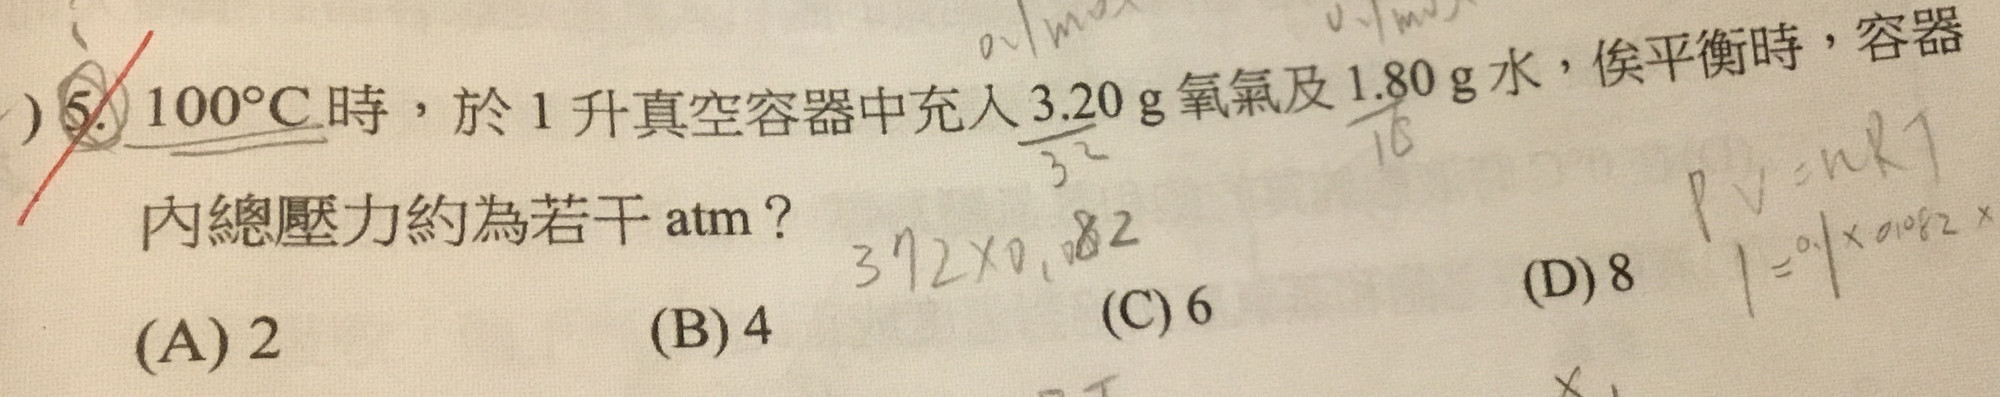 0.1mol
0.1mol
) 5. 100°C 時，於 1 升真空容器中充入 3.20 g 氧氣及 1.80 g 水，俟平衡時，容器
32
18
內總壓力約為若干 atm？
372×0.082
PV=nRT
1=0.1×0.082×
(A) 2 (B) 4 (C) 6 (D) 8